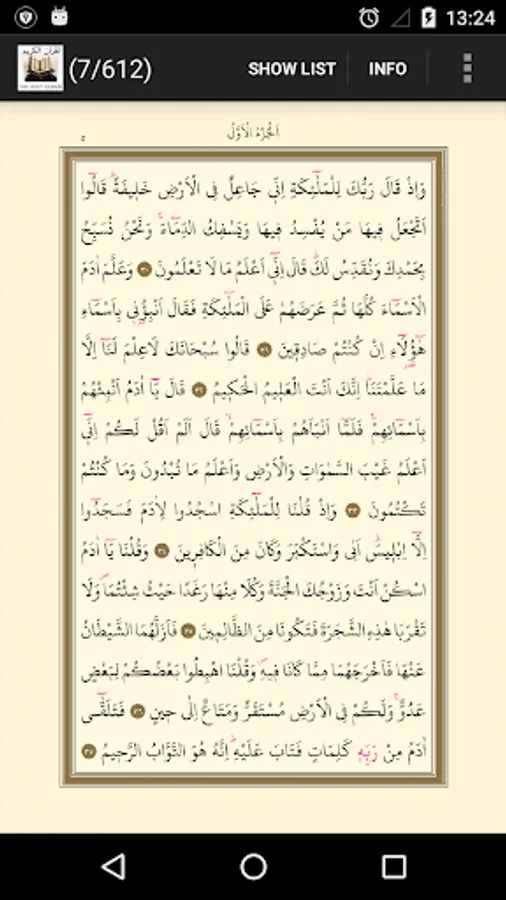 13:24
(7/612) SHOW LIST INFO
اَلْجُزْءُ الْاَوَّلُ ٥
وَاِذْ قَالَ رَبُّكَ لِلْمَلٰٓئِكَةِ اِنّ۪ي جَاعِلٌ فِي الْاَرْضِ خَل۪يفَةًۜ قَالُٓوا
اَتَجْعَلُ ف۪يهَا مَنْ يُفْسِدُ ف۪يهَا وَيَسْفِكُ الدِّمَٓاءَۚ وَنَحْنُ نُسَبِّحُ
بِحَمْدِكَ وَنُقَدِّسُ لَكَۜ قَالَ اِنّ۪ٓي اَعْلَمُ مَا لَا تَعْلَمُونَ ٣٠ وَعَلَّمَ اٰدَمَ
الْاَسْمَٓاءَ كُلَّهَا ثُمَّ عَرَضَهُمْ عَلَى الْمَلٰٓئِكَةِ فَقَالَ اَنْبِؤُ۫ن۪ي بِاَسْمَٓاءِ
هٰٓؤُ۬لَٓاءِ اِنْ كُنْتُمْ صَادِق۪ينَ ٣١ قَالُوا سُبْحَانَكَ لَا عِلْمَ لَنَٓا اِلَّا
مَا عَلَّمْتَنَاۜ اِنَّكَ اَنْتَ الْعَل۪يمُ الْحَك۪يمُ ٣٢ قَالَ يَٓا اٰدَمُ اَنْبِئْهُمْ
بِاَسْمَٓائِهِمْۚ فَلَمَّٓا اَنْبَاَهُمْ بِاَسْمَٓائِهِمْۙ قَالَ اَلَمْ اَقُلْ لَكُمْ اِنّ۪ٓي
اَعْلَمُ غَيْبَ السَّمٰوَاتِ وَالْاَرْضِ وَاَعْلَمُ مَا تُبْدُونَ وَمَا كُنْتُمْ
تَكْتُمُونَ ٣٣ وَاِذْ قُلْنَا لِلْمَلٰٓئِكَةِ اسْجُدُوا لِاٰدَمَ فَسَجَدُٓوا
اِلَّٓا اِبْل۪يسَۜ اَبٰى وَاسْتَكْبَرَ وَكَانَ مِنَ الْكَافِر۪ينَ ٣٤ وَقُلْنَا يَٓا اٰدَمُ
اسْكُنْ اَنْتَ وَزَوْجُكَ الْجَنَّةَ وَكُلَا مِنْهَا رَغَدًا حَيْثُ شِئْتُمَاۖ وَلَا
تَقْرَبَا هٰذِهِ الشَّجَرَةَ فَتَكُونَا مِنَ الظَّالِم۪ينَ ٣٥ فَاَزَلَّهُمَا الشَّيْطَانُ
عَنْهَا فَاَخْرَجَهُمَا مِمَّا كَانَا ف۪يهِۖ وَقُلْنَا اهْبِطُوا بَعْضُكُمْ لِبَعْضٍ
عَدُوٌّۚ وَلَكُمْ فِي الْاَرْضِ مُسْتَقَرٌّ وَمَتَاعٌ اِلٰى ح۪ينٍ ٣٦ فَتَلَقّٰٓى
اٰدَمُ مِنْ رَبِّه۪ كَلِمَاتٍ فَتَابَ عَلَيْهِۜ اِنَّهُ هُوَ التَّوَّابُ الرَّح۪يمُ ٣٧